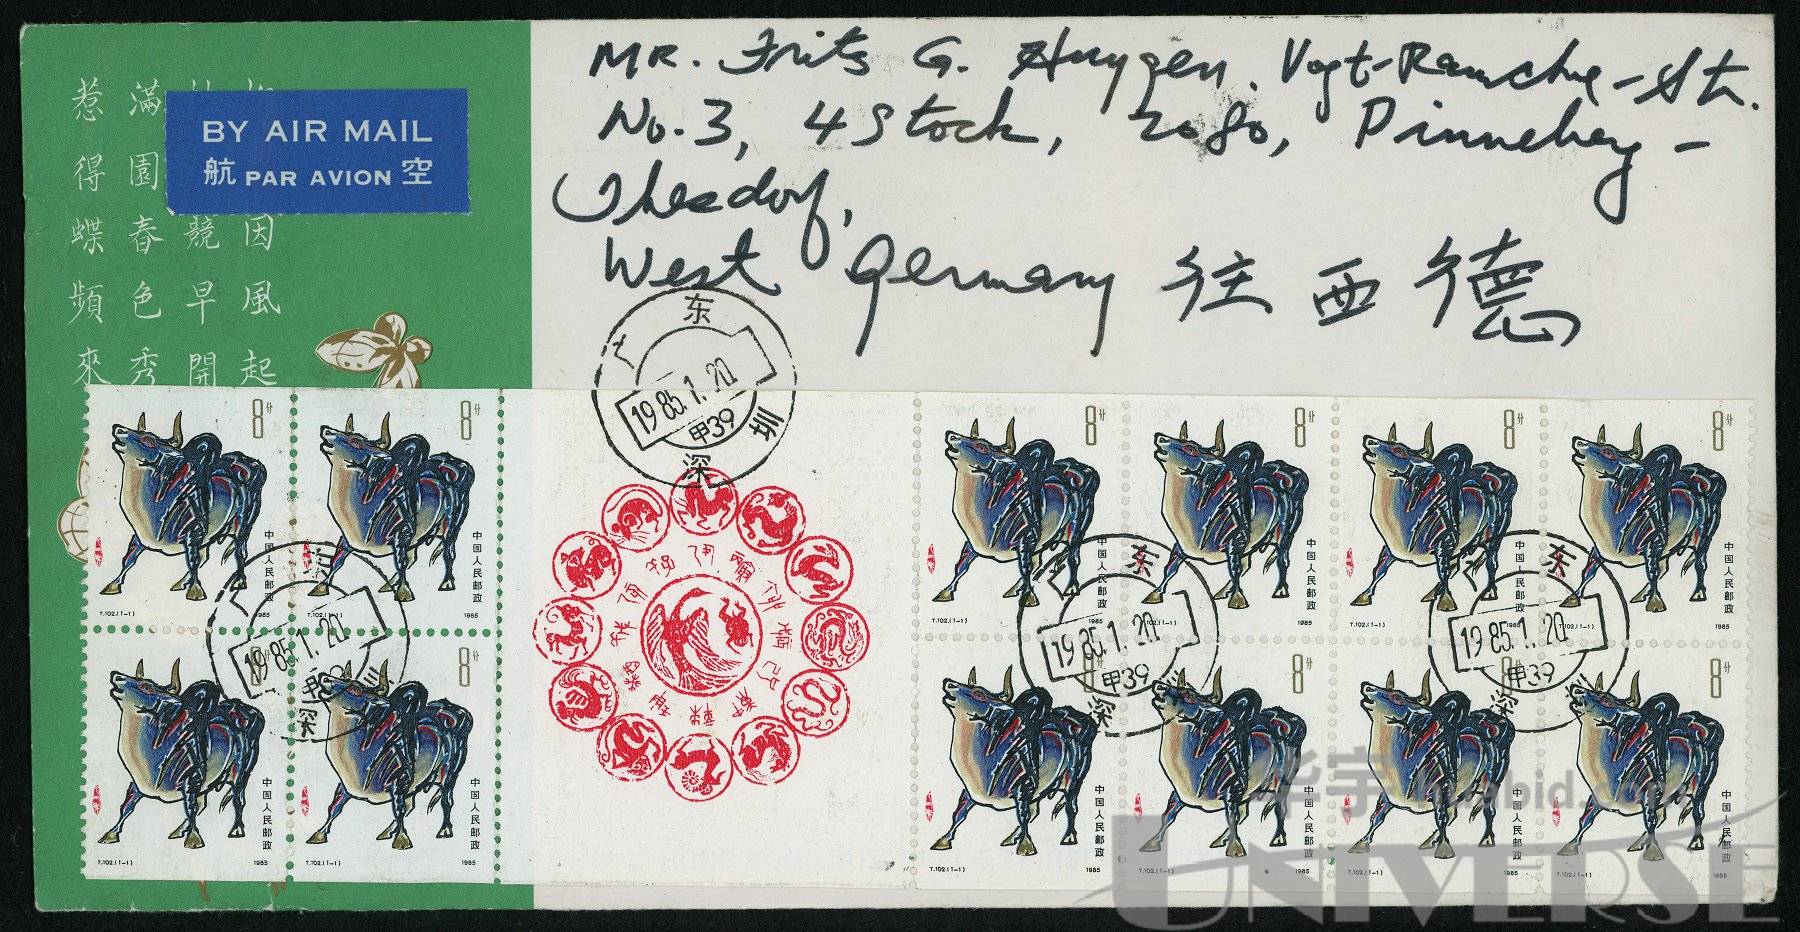 MR. Frits G. Huygen. Vogt-Ramcke-Str.
No. 3, 4 Stock, 2080, Pinneberg-
Thesdorf,
West Germany 往西德
BY AIR MAIL
航 PAR AVION 空
因風起
競早開
滿園春色秀
惹得蝶頻來
广东
1985.1.20
甲39
深圳
8分
8分
8分
8分
8分
8分
中国人民邮政
中国人民邮政
中国人民邮政
中国人民邮政
中国人民邮政
中国人民邮政
T.102.(1-1) 1985
T.102.(1-1)
T.102.(1-1) 1985
T.102.(1-1) 1985
T.102.(1-1) 1985
T.102.(1-1) 1985
广东
1985.1.20
甲39
深圳
广东
1985.1.20
甲39
深圳
广东
1985.1.20
甲39
深
8分
8分
8分
8分
8分
8分
中国人民邮政
中国人民邮政
中国人民邮政
中国人民邮政
中国人民邮政
中国人民邮政
T.102.(1-1) 1985
T.102.(1-1) 1985
T.102.(1-1) 1985
T.102.(1-1) 1985
T.102.(1-1) 1985
T.102.(1-1) 1985
华宇 huabid.com
UNIVERSE